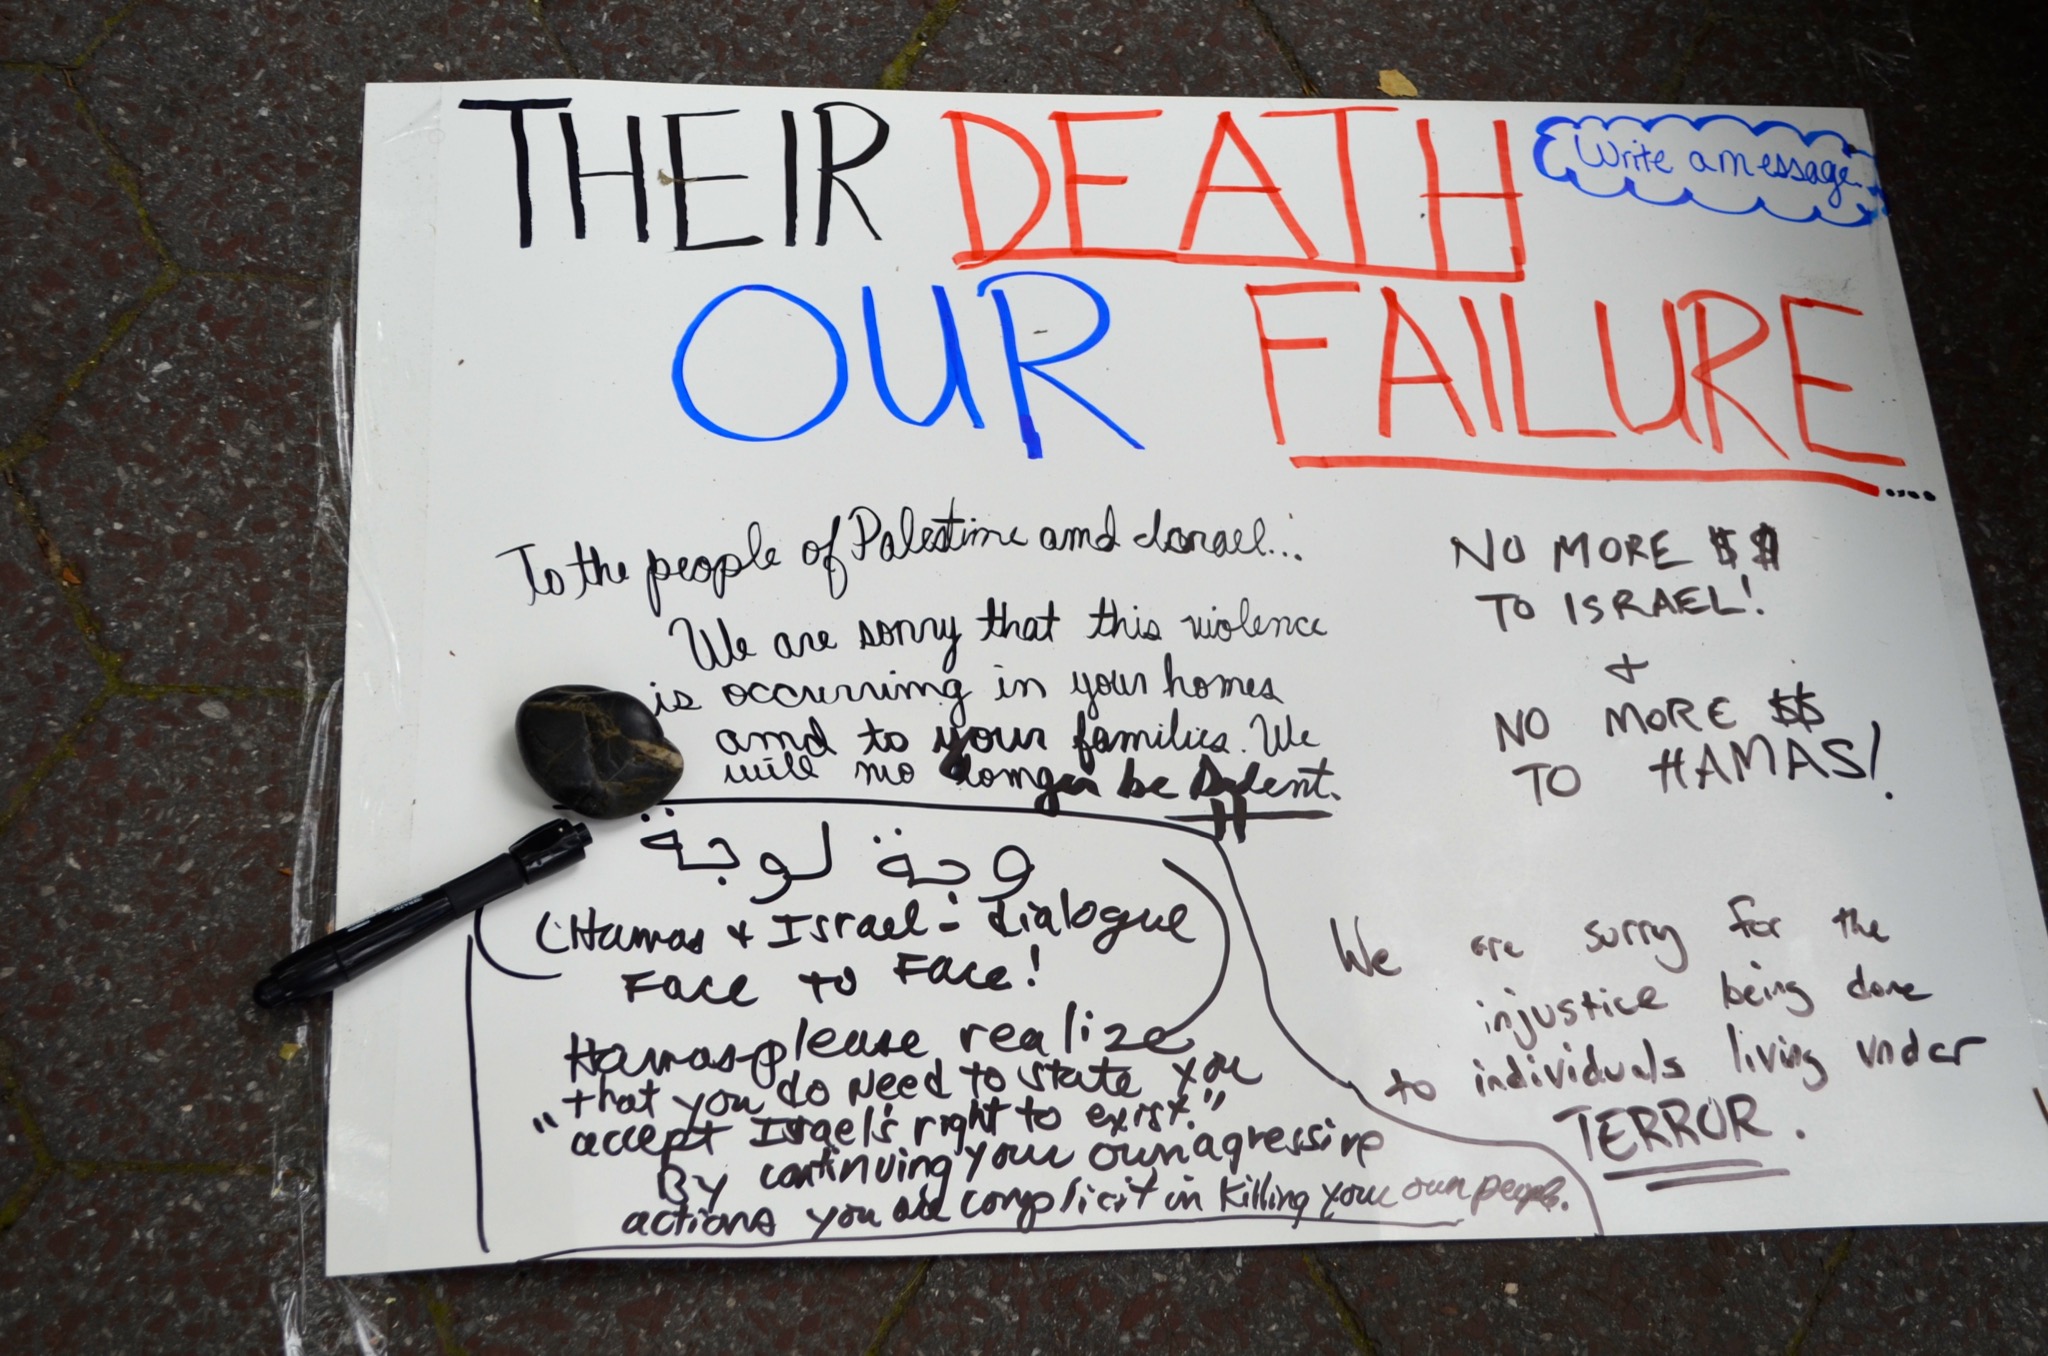 THEIR DEATH
OUR FAILURE....
Write a message...
To the people of Palestine and Israel...
We are sorry that this violence
is occurring in your homes
and to your families. We
will no longer be
NO MORE $$
TO ISRAEL!
+
NO MORE $$
TO HAMAS!
وجة لوجة
(Hamas + Israel - dialogue
Face to Face!)
Hamas-please realize
that you do need to state you
"accept Israel's right to exist."
By continuing your own agressive
actions you are complicit in killing your own people.
We are sorry for the
injustice being done
to individuals living under
TERROR.